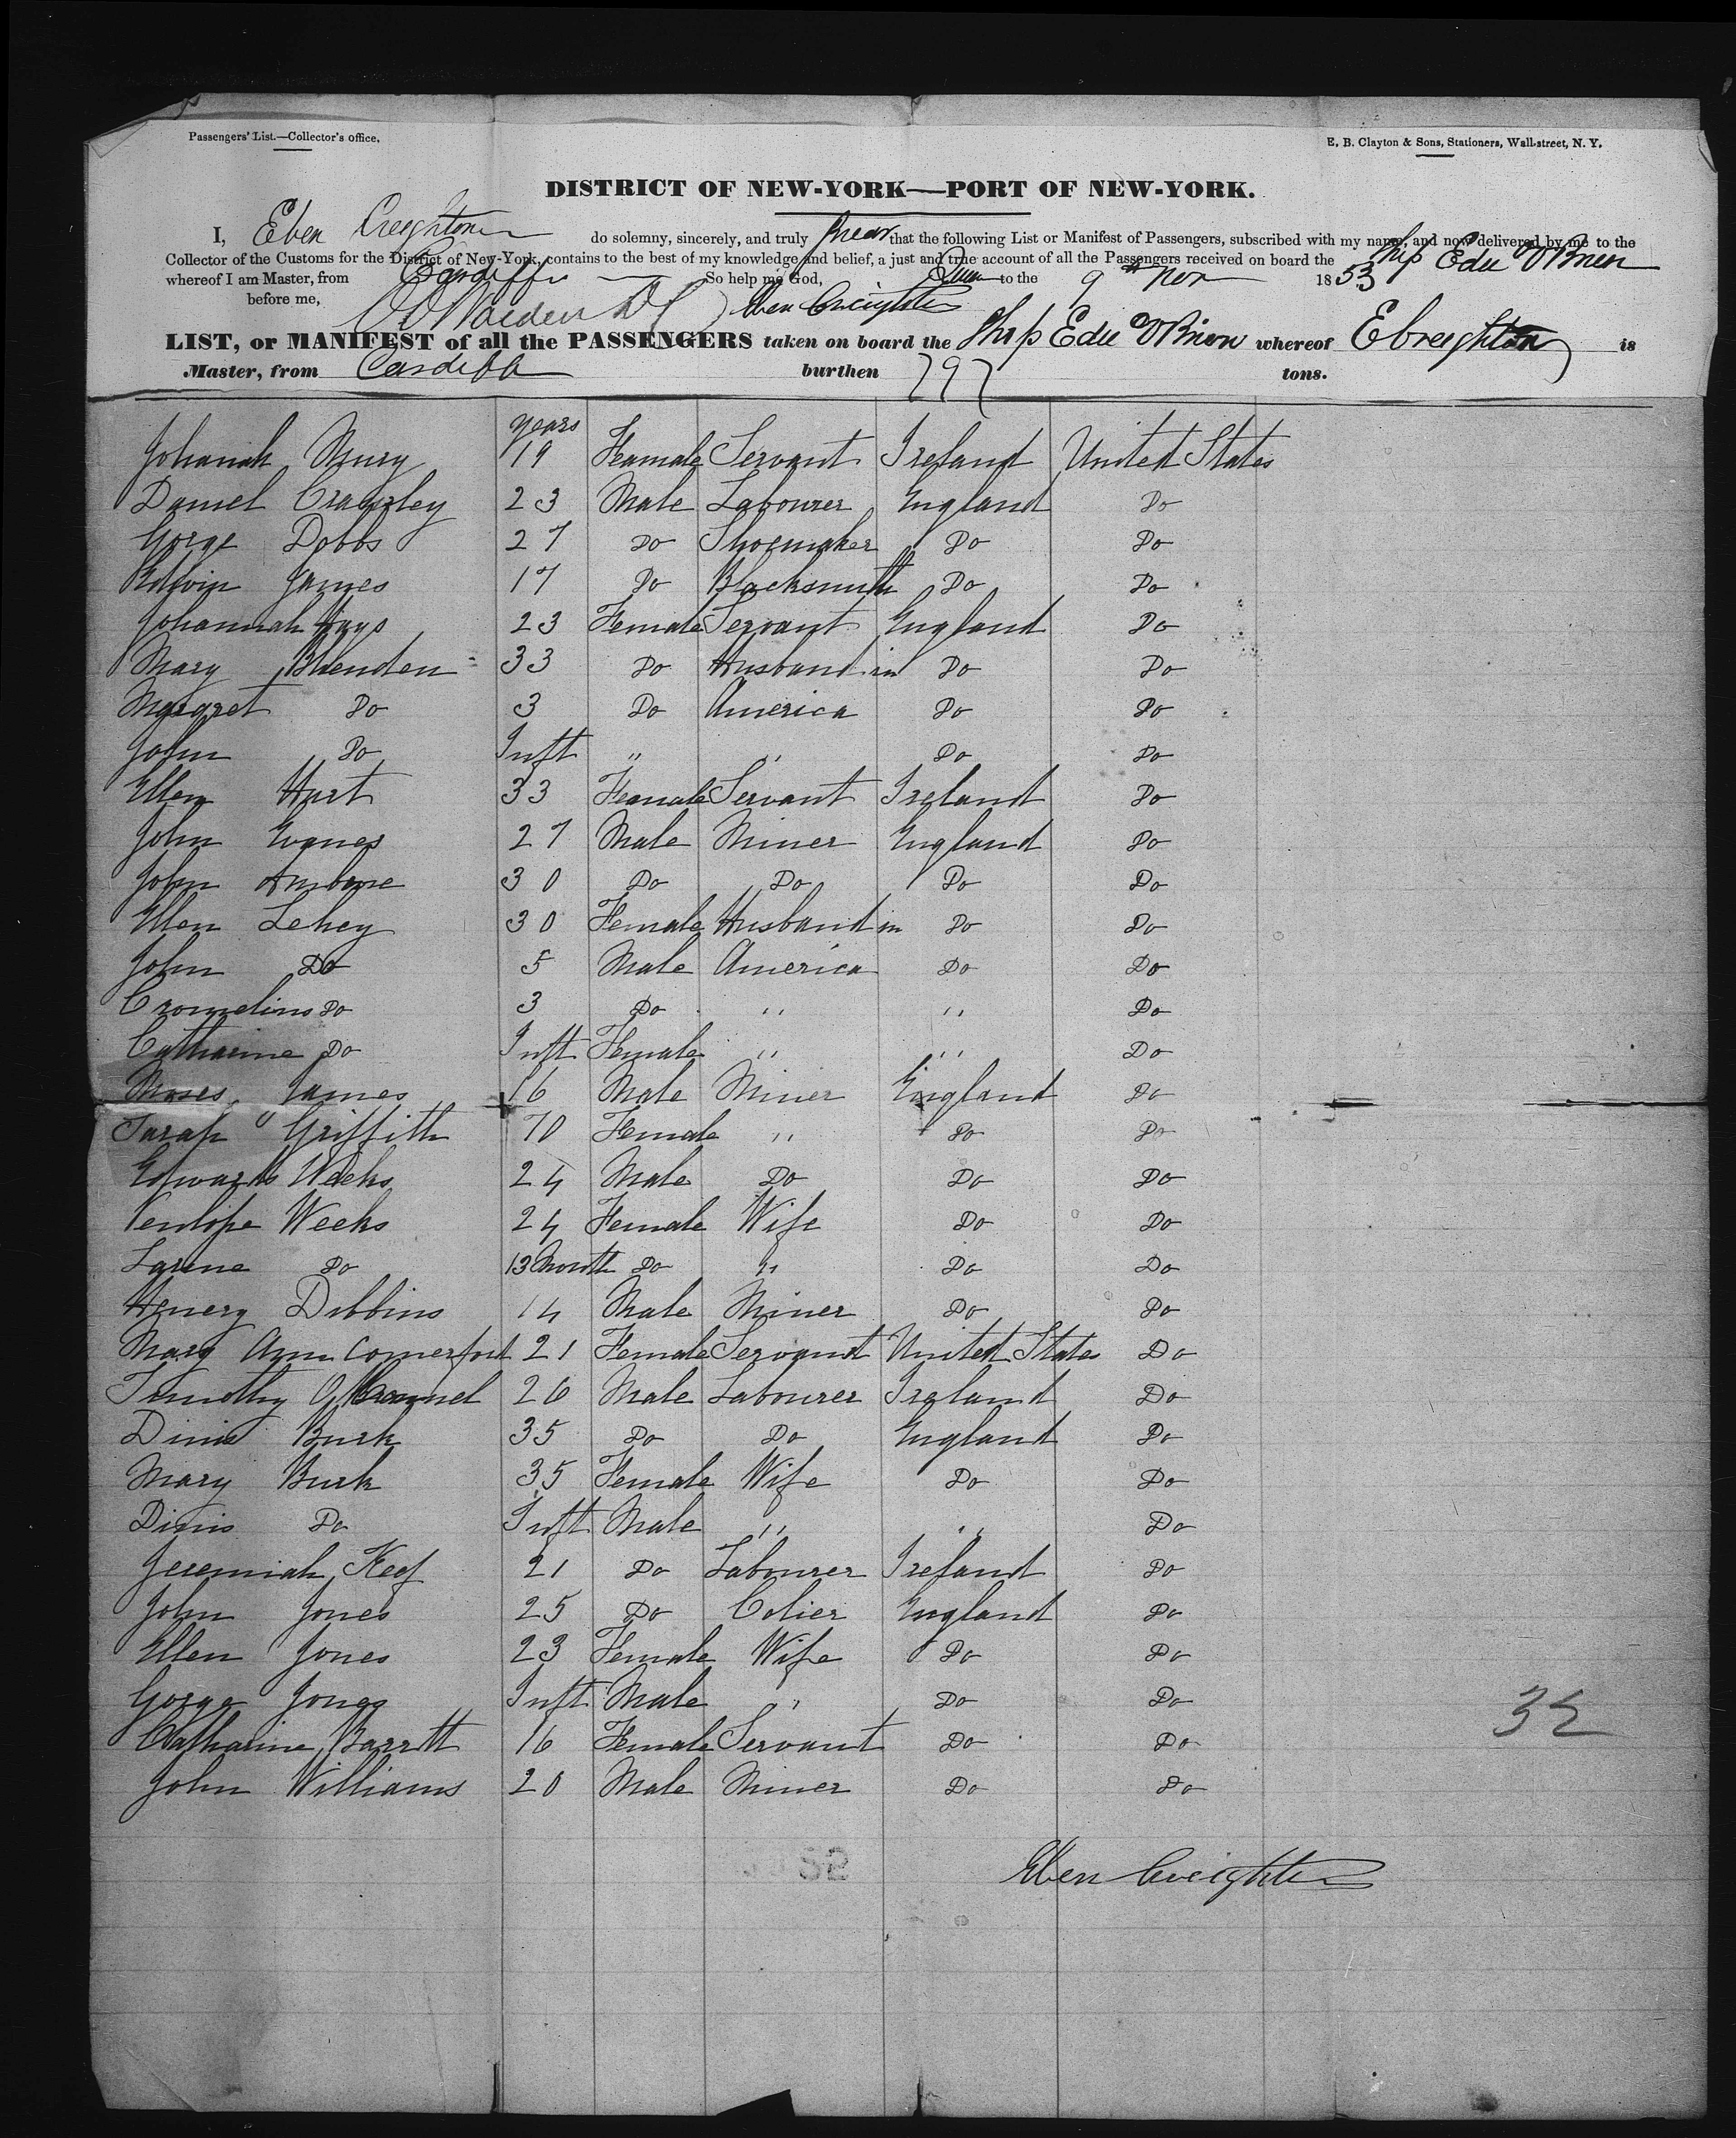 Passengers' List.—Collector's office.
E. B. Clayton & Sons, Stationers, Wall-street, N. Y.
DISTRICT OF NEW-YORK—PORT OF NEW-YORK.
I, Eben Creighton do solemny, sincerely, and truly swear that the following List or Manifest of Passengers, subscribed with my name, and now delivered by me to the
Collector of the Customs for the District of New-York, contains to the best of my knowledge and belief, a just and true account of all the Passengers received on board the Ship Edw O'Brien
whereof I am Master, from Cardiff So help me God, to the 9th Nov 1853
before me, Eben Creighton
LIST, or MANIFEST of all the PASSENGERS taken on board the Ship Edw O'Brien whereof E Creighton is
Master, from Cardiff burthen 797 tons.
years
Johanah 19 Feamale Servant Ireland United States
Daniel Crawley 23 Male Labourer England Do
Gorge Dobbs 27 Do Shoemaker Do Do
Edwin James 17 Do Blacksmith Do Do
Johannah Hays 23 Female Servant England Do
Mary 33 Do Husband in Do Do
Margaret Do 3 Do America Do Do
John Do Inft " " Do Do
Ellen Hart 33 Feamale Servant Ireland Do
John Evanes 27 Male Miner England Do
John 30 Do Do Do Do
Ellen Lehey 30 Female Husband in Do Do
John Do 5 Male America Do Do
Cornelius Do 3 Do " " Do
Catharine Do Inft Female " " Do
Moses James 16 Male Miner England Do
Sarah Griffith 70 Female " Do Do
Edwards Weeks 24 Male Do Do Do
Penlope Weeks 24 Female Wife Do Do
Do 13 Month Do " Do Do
Henery Dibbins 14 Male Miner Do Do
Mary Ann Comerfort 21 Female Servant United States Do
Timothy 26 Male Labourer Ireland Do
Dinis Burk 35 Do Do England Do
Mary Burk 35 Female Wife Do Do
Dinis Do Inft Male " " Do
Jeremiah Keef 21 Do Labourer Ireland Do
John Jones 25 Do Colier England Do
Ellen Jones 23 Female Wife Do Do
Gorge Jones Inft Male " Do Do
32
Catharine Barrett 16 Female Servant Do Do
John Williams 20 Male Miner Do Do
Eben Creighton